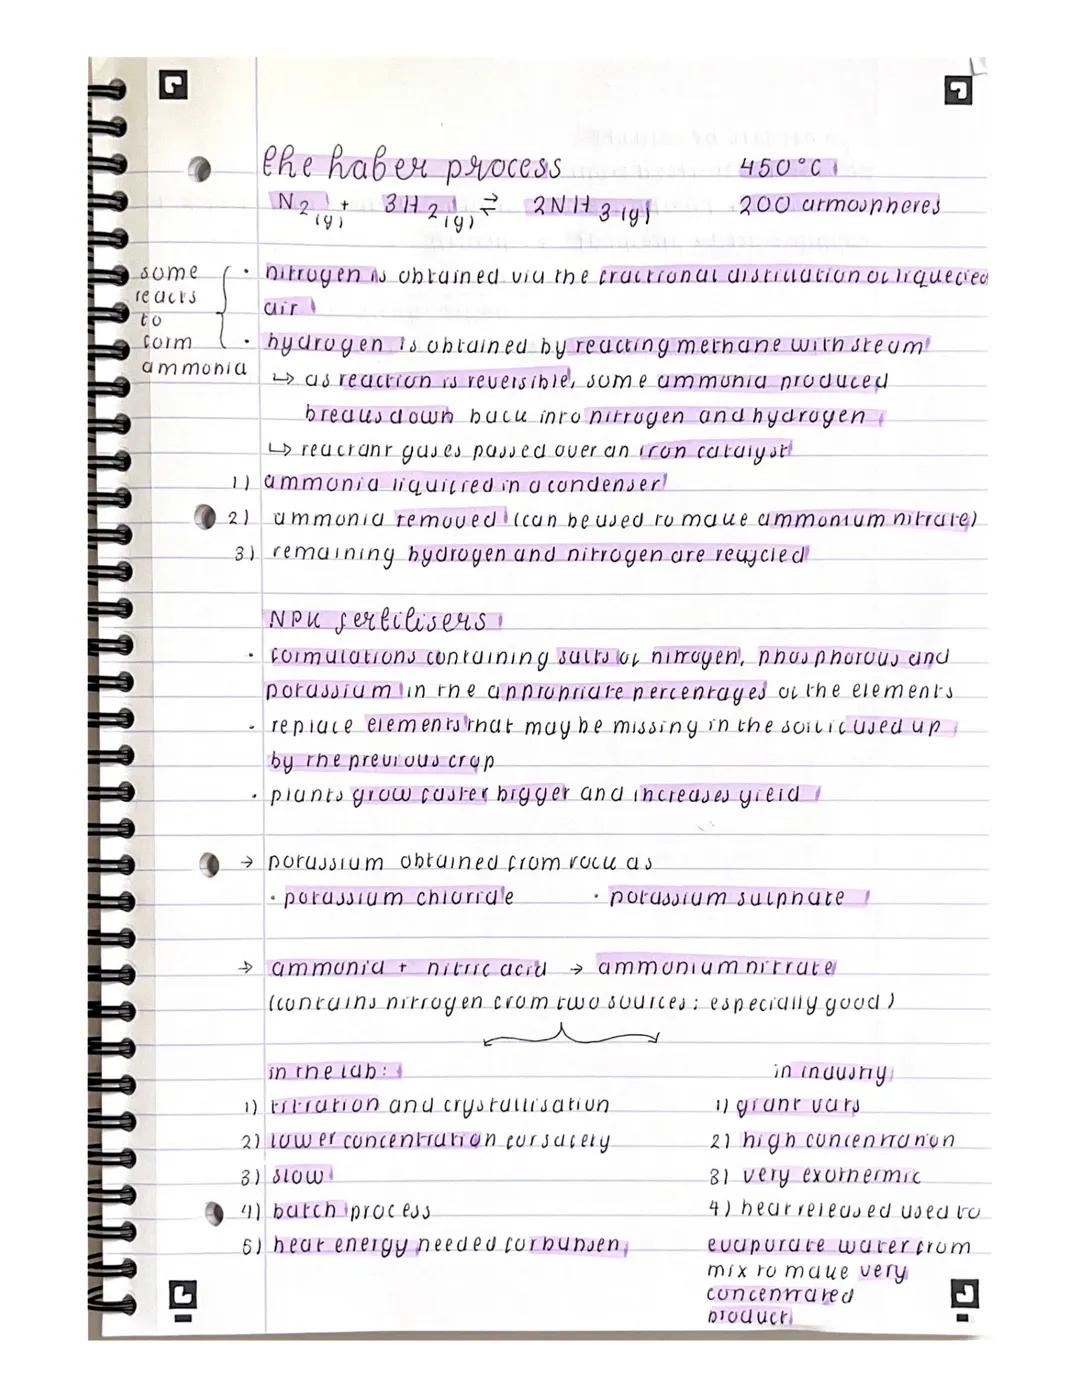 the haber process 450°C
N2 (g) + 3H2 (g) ⇌ 2NH3 (g) 200 atmospheres
some reacts to form ammonia
· nitrogen is obtained via the fractional distillation of liquefied
air
· hydrogen is obtained by reacting methane with steam
↳ as reaction is reversible, some ammonia produced
breaks down back into nitrogen and hydrogen
↳ reactant gases passed over an iron catalyst
1) ammonia liquified in a condenser
2) ammonia removed (can be used to make ammonium nitrate)
3) remaining hydrogen and nitrogen are recycled
NPK fertilisers
· formulations containing salts of nitrogen, phosphorous and
potassium in the appropriate percentages of the elements
· replace elements that may be missing in the soil if used up
by the previous crop
· plants grow faster bigger and increases yield
→ potassium obtained from rock as
· potassium chloride · potassium sulphate
→ ammonia + nitric acid → ammonium nitrate
(contains nitrogen from two sources; especially good)
in the lab: in industry
1) titration and crystallisation 1) giant vats
2) lower concentration for safety 2) high concentration
3) slow 3) very exothermic
4) batch process 4) heat released used to
5) heat energy needed for bunsen evaporate water from
mix to make very
concentrated
product